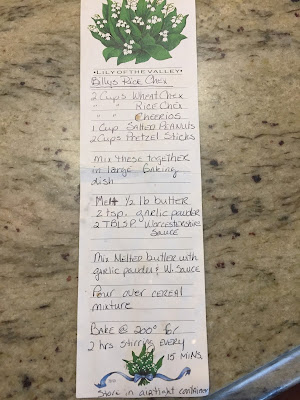 •LILY OF THE VALLEY•
Billy's Rice Chex
2 Cups Wheat Chex
" " Rice Chex
" " Cheerios
1 Cup Salted Peanuts
2 Cups Pretzel Sticks
Mix these together
in large baking
dish
Melt ½ lb butter
2 tsp. garlic powder
2 TBLSP. Worcestershire
Sauce
Mix Melted butter with
garlic powder & W. Sauce
Pour over cereal
mixture
Bake @ 200° for
2 hrs stirring every
15 mins.
Store in airtight container